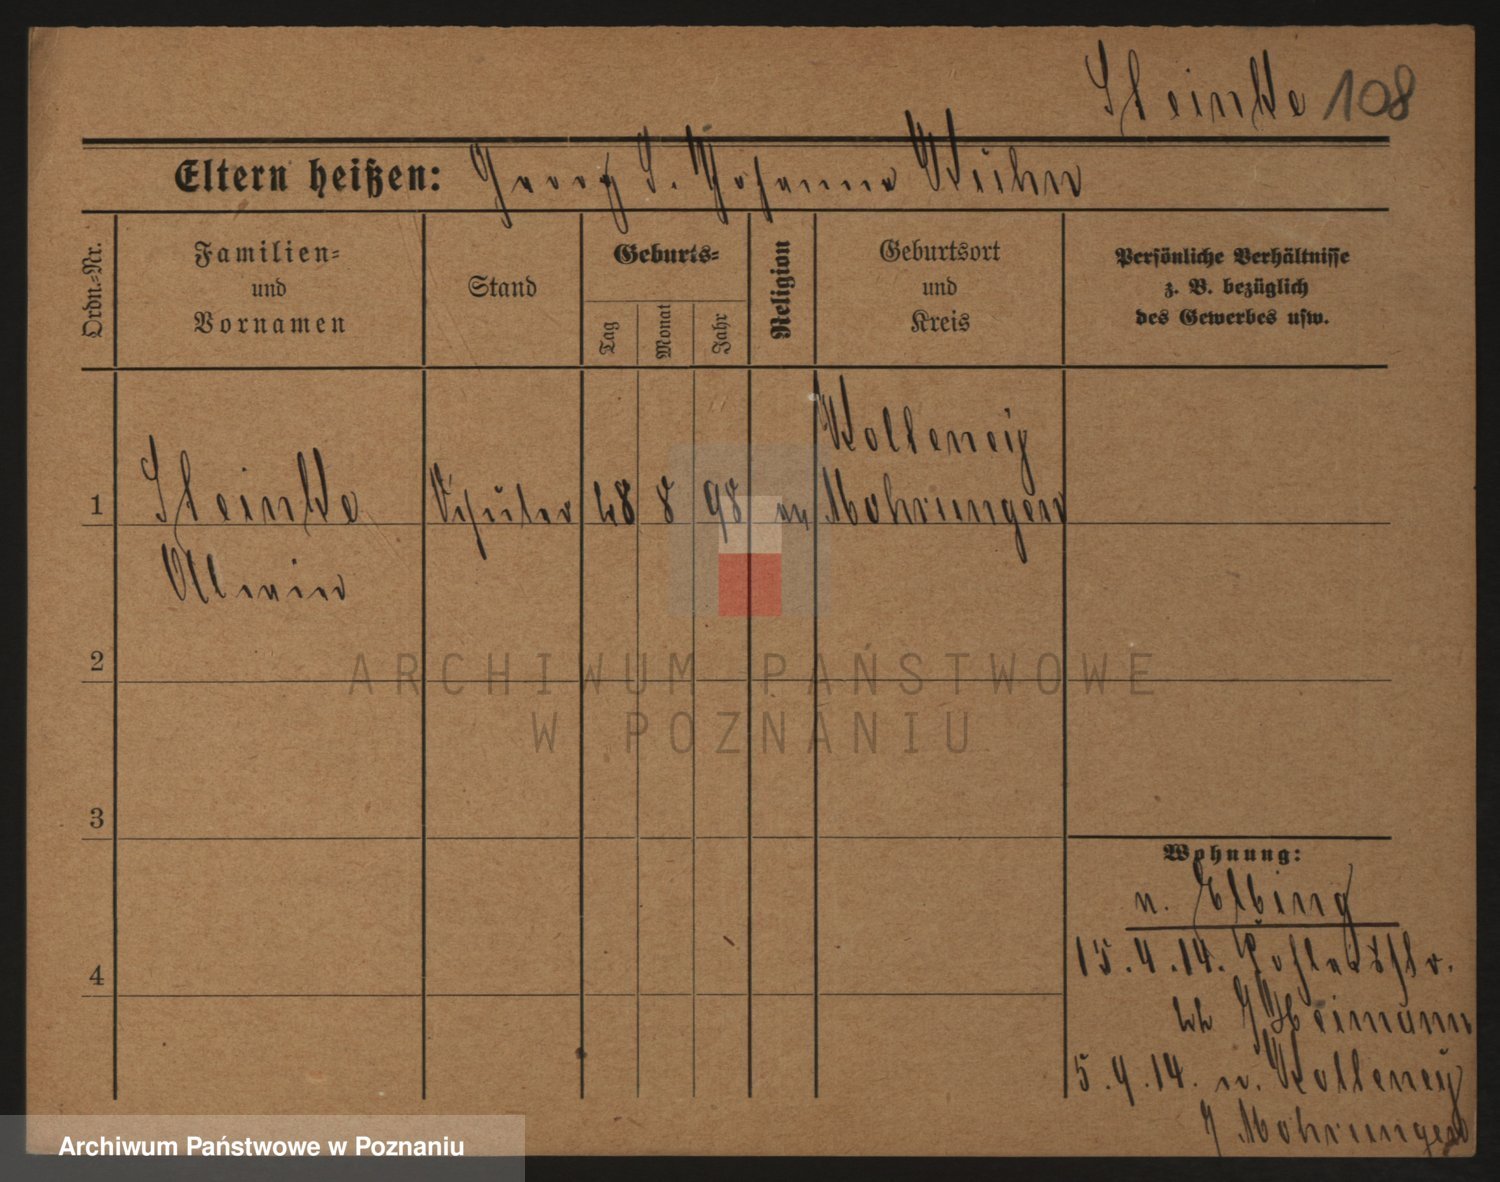 Steinke 108
Eltern heißen: Georg S. Johanna Kuhn
Ordn.-Nr.
Familien-
und
Vornamen
Stand
Geburts-
Tag
Monat
Jahr
Religion
Geburtsort
und
Kreis
Persönliche Verhältnisse
z. B. bezüglich
des Gewerbes usw.
Kolteney
1 Steinke Schüler 28 8 98 ev Mohrungen
Alwin
2
ARCHIWUM PAŃSTWOWE
W POZNANIU
3
Wohnung:
n. Elbing
15.4.14.
4
22 Heimann
5.9.14. n. Kolteney
Mohrungen
Archiwum Państwowe w Poznaniu